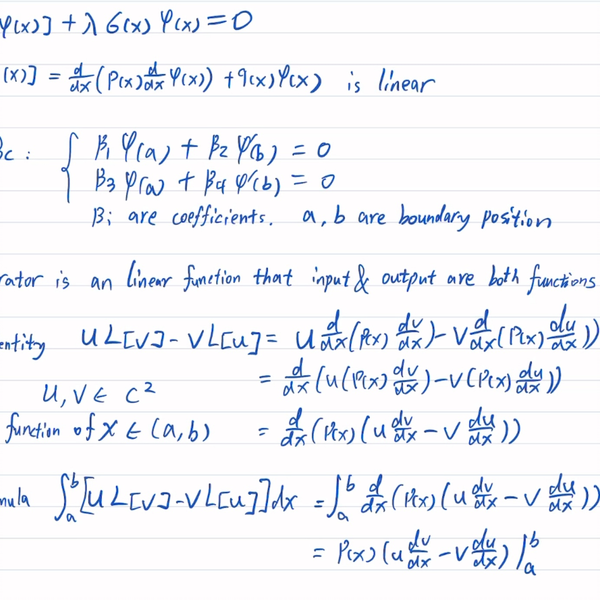 φ(x)] + λ σ(x) φ(x) = 0
(x)] = d/dx (P(x) d/dx φ(x)) + q(x) φ(x) is linear
BC : { β₁ φ(a) + β₂ φ'(b) = 0
β₃ φ(a) + β₄ φ'(b) = 0
βi are coefficients. a, b are boundary position
rator is an linear function that input & output are both functions
entity U L[V] - V L[U] = U d/dx (P(x) dv/dx) - V d/dx (P(x) du/dx)
= d/dx (U (P(x) dv/dx) - V (P(x) du/dx))
U, V ∈ C²
function of X ∈ (a, b) = d/dx (P(x) (U dv/dx - V du/dx))
mula ∫ₐᵇ [U L[V] - V L[U]] dx = ∫ₐᵇ d/dx (P(x) (U dv/dx - V du/dx))
= P(x) (U dv/dx - V du/dx) |ₐᵇ